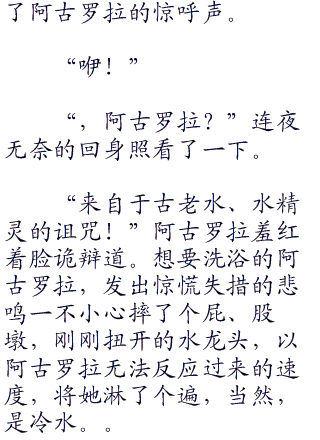 了阿古罗拉的惊呼声。
“咿！”
“，阿古罗拉？”连夜
无奈的回身照看了一下。
“来自于古老水、水精
灵的诅咒！”阿古罗拉羞红
着脸诡辩道。想要洗浴的阿
古罗拉，发出惊慌失措的悲
鸣一不小心摔了个屁、股
墩，刚刚扭开的水龙头，以
阿古罗拉无法反应过来的速
度，将她淋了个遍，当然，
是冷水。。